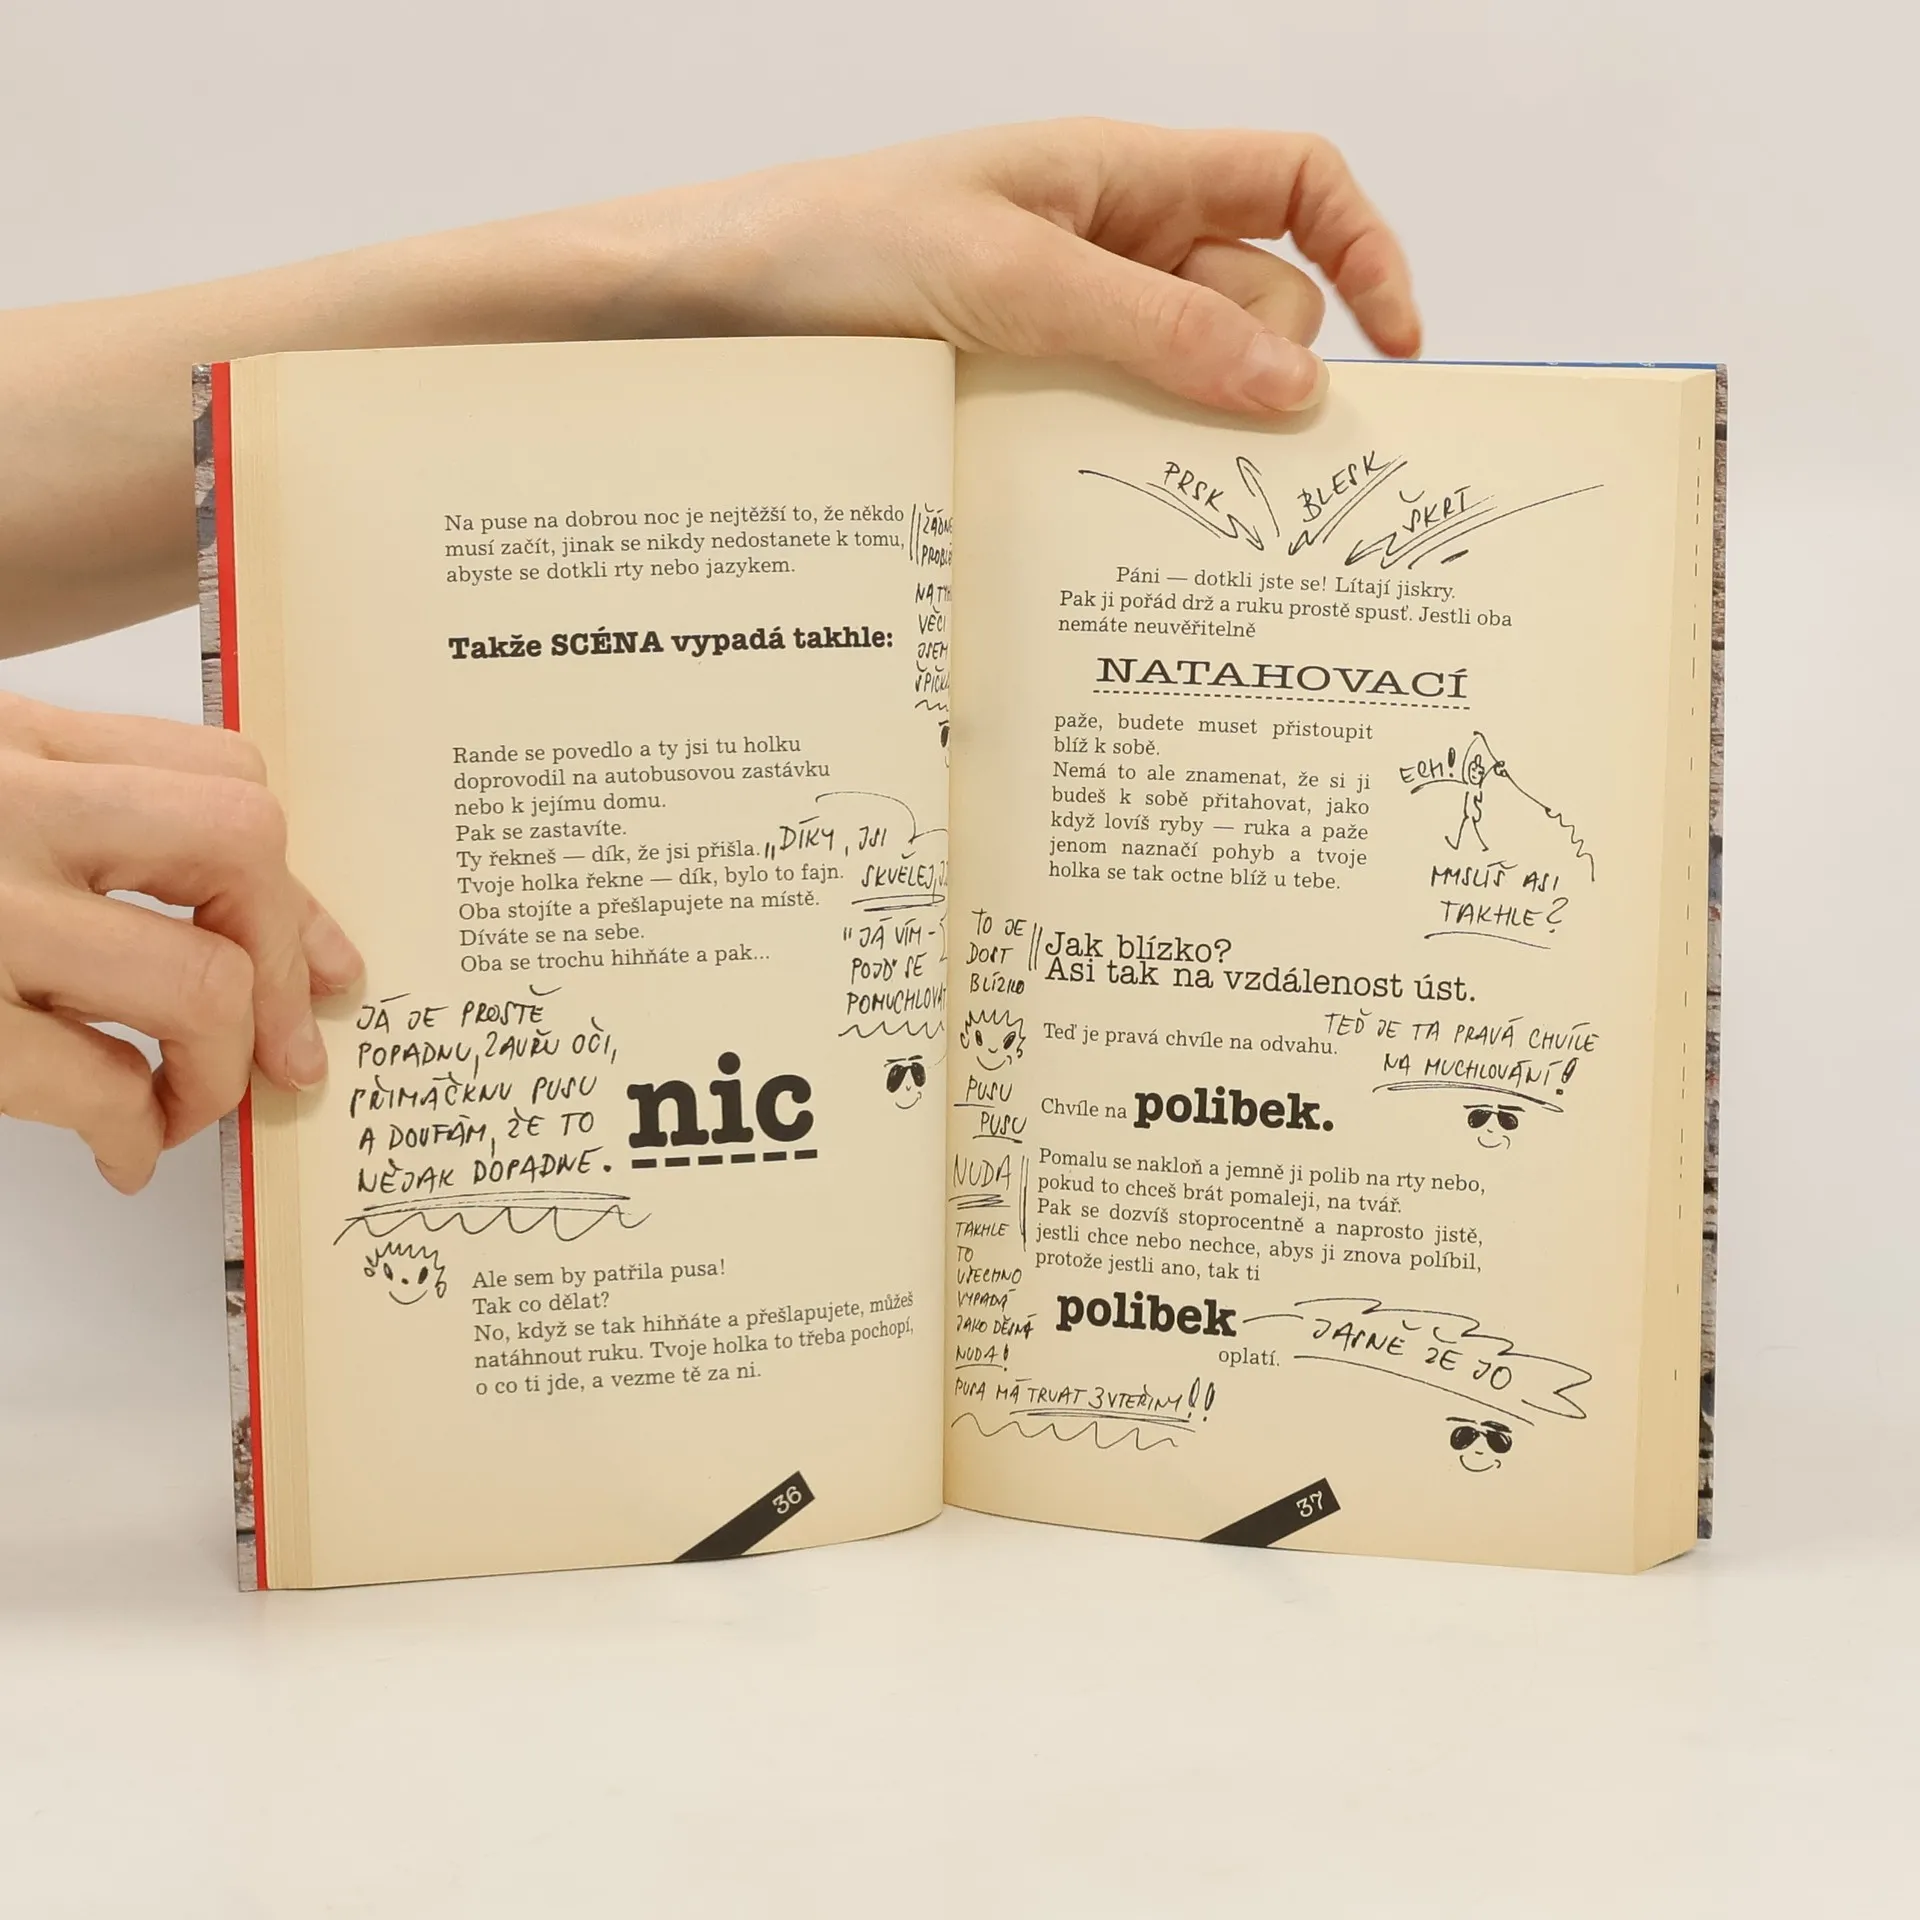 Na puse na dobrou noc je nejtěžší to, že někdo
musí začít, jinak se nikdy nedostanete k tomu,
abyste se dotkli rty nebo jazykem.
Takže SCÉNA vypadá takhle:
VĚCI
JSEM
Rande se povedlo a ty jsi tu holku
doprovodil na autobusovou zastávku
nebo k jejímu domu.
Pak se zastavíte.
Ty řekneš — dík, že jsi přišla.
Tvoje holka řekne — dík, bylo to fajn.
Oba stojíte a přešlapujete na místě.
Díváte se na sebe.
Oba se trochu hihňáte a pak...
"DÍKY, JSI
SKVĚLEJ,
"JÁ VÍM -
POJĎ SE
POMUCHLOVAT
JÁ JE PROSTĚ
POPADNU, ZAVŘU OČI,
PŘIMÁČKNU PUSU
A DOUFÁM, ŽE TO
NĚJAK DOPADNE.
nic
Ale sem by patřila pusa!
Tak co dělat?
No, když se tak hihňáte a přešlapujete, můžeš
natáhnout ruku. Tvoje holka to třeba pochopí,
o co ti jde, a vezme tě za ni.
36
PRSK
BLESK
ŠKRT
Páni — dotkli jste se! Lítají jiskry.
Pak ji pořád drž a ruku prostě spusť. Jestli oba
nemáte neuvěřitelně
NATAHOVACÍ
paže, budete muset přistoupit
blíž k sobě.
Nemá to ale znamenat, že si ji
budeš k sobě přitahovat, jako
když lovíš ryby — ruka a paže
jenom naznačí pohyb a tvoje
holka se tak octne blíž u tebe.
ECH!
MYSLÍŠ ASI
TAKHLE?
TO JE
DOST
BLÍZKO
Jak blízko?
Asi tak na vzdálenost úst.
Teď je pravá chvíle na odvahu.
TEĎ JE TA PRAVÁ CHVÍLE
NA MUCHLOVÁNÍ!
PUSU
PUSU
Chvíle na polibek.
Pomalu se nakloň a jemně ji polib na rty nebo,
pokud to chceš brát pomaleji, na tvář.
Pak se dozvíš stoprocentně a naprosto jistě,
jestli chce nebo nechce, abys ji znova políbil,
protože jestli ano, tak ti
NUDA
TAKHLE
TO
VŠECHNO
VYPADÁ
JAKO DĚSNÁ
NUDA!
polibek
oplatí.
JASNĚ ŽE JO
PUSA MÁ TRVAT 3 VTEŘINY!!
37